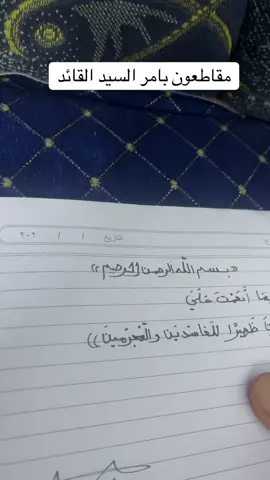 مقاطعون بامر السيد القائد
التاريخ / / ٢٠٢
«بسم الله الرحمن الرحيم»
أنعمت علي
ظهيرًا للفاسدين والمجرمين))